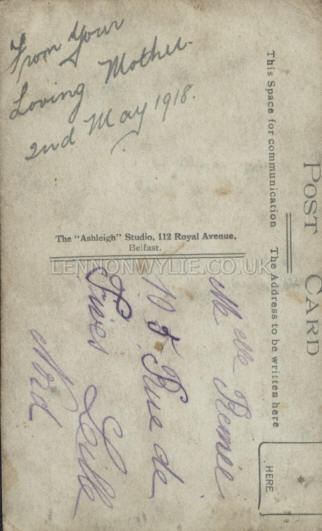 From Your
Loving Mother.
2nd May 1918.
POST CARD
This Space for communication
The Address to be written here
HERE
The "Ashleigh" Studio, 112 Royal Avenue,
Belfast.
LENNONWYLIE.CO.UK
Rue de
Fives Lille
Nord